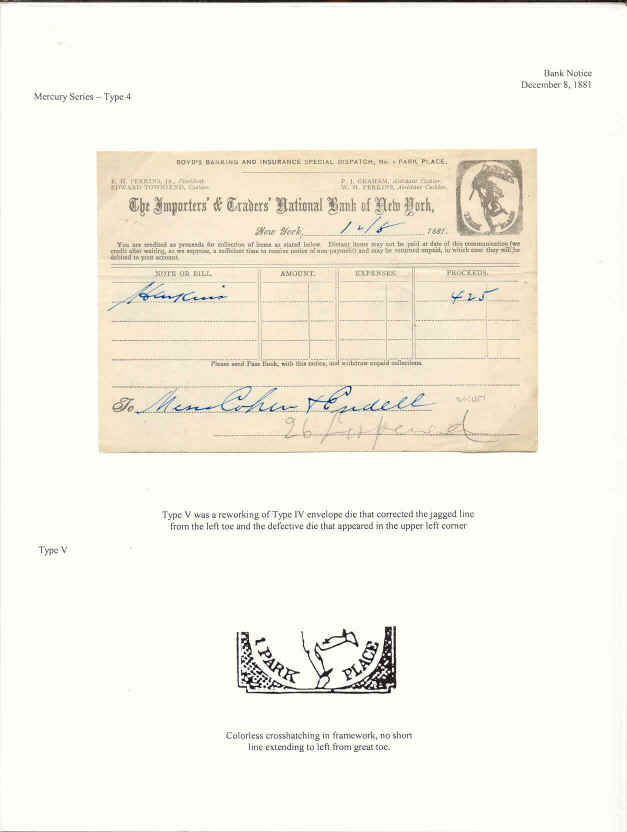 Bank Notice
December 8, 1881
Mercury Series – Type 4
BOYD'S BANKING AND INSURANCE SPECIAL DISPATCH, No. 1 PARK PLACE.
E. H. PERKINS, JR., President.
EDWARD TOWNSEND, Cashier.
P. J. GRAHAM, Assistant Cashier.
W. H. PERKINS, Assistant Cashier.
The Importers' & Traders' National Bank of New York,
New York, 12/8 1881.
You are credited as proceeds for collection of items as stated below. Distant items may not be paid at date of this communication (we
credit after waiting, as we suppose, a sufficient time to receive notice of non-payment) and may be returned unpaid, in which case they will be
debited to your account.
NOTE OR BILL. AMOUNT. EXPENSES. PROCEEDS.
425
Please send Pass Book, with this notice, and withdraw unpaid collections.
To Mess Cohen & Endell
26
Type V was a reworking of Type IV envelope die that corrected the jagged line
from the left toe and the defective die that appeared in the upper left corner
Type V
1 PARK PLACE
Colorless crosshatching in framework, no short
line extending to left from great toe.